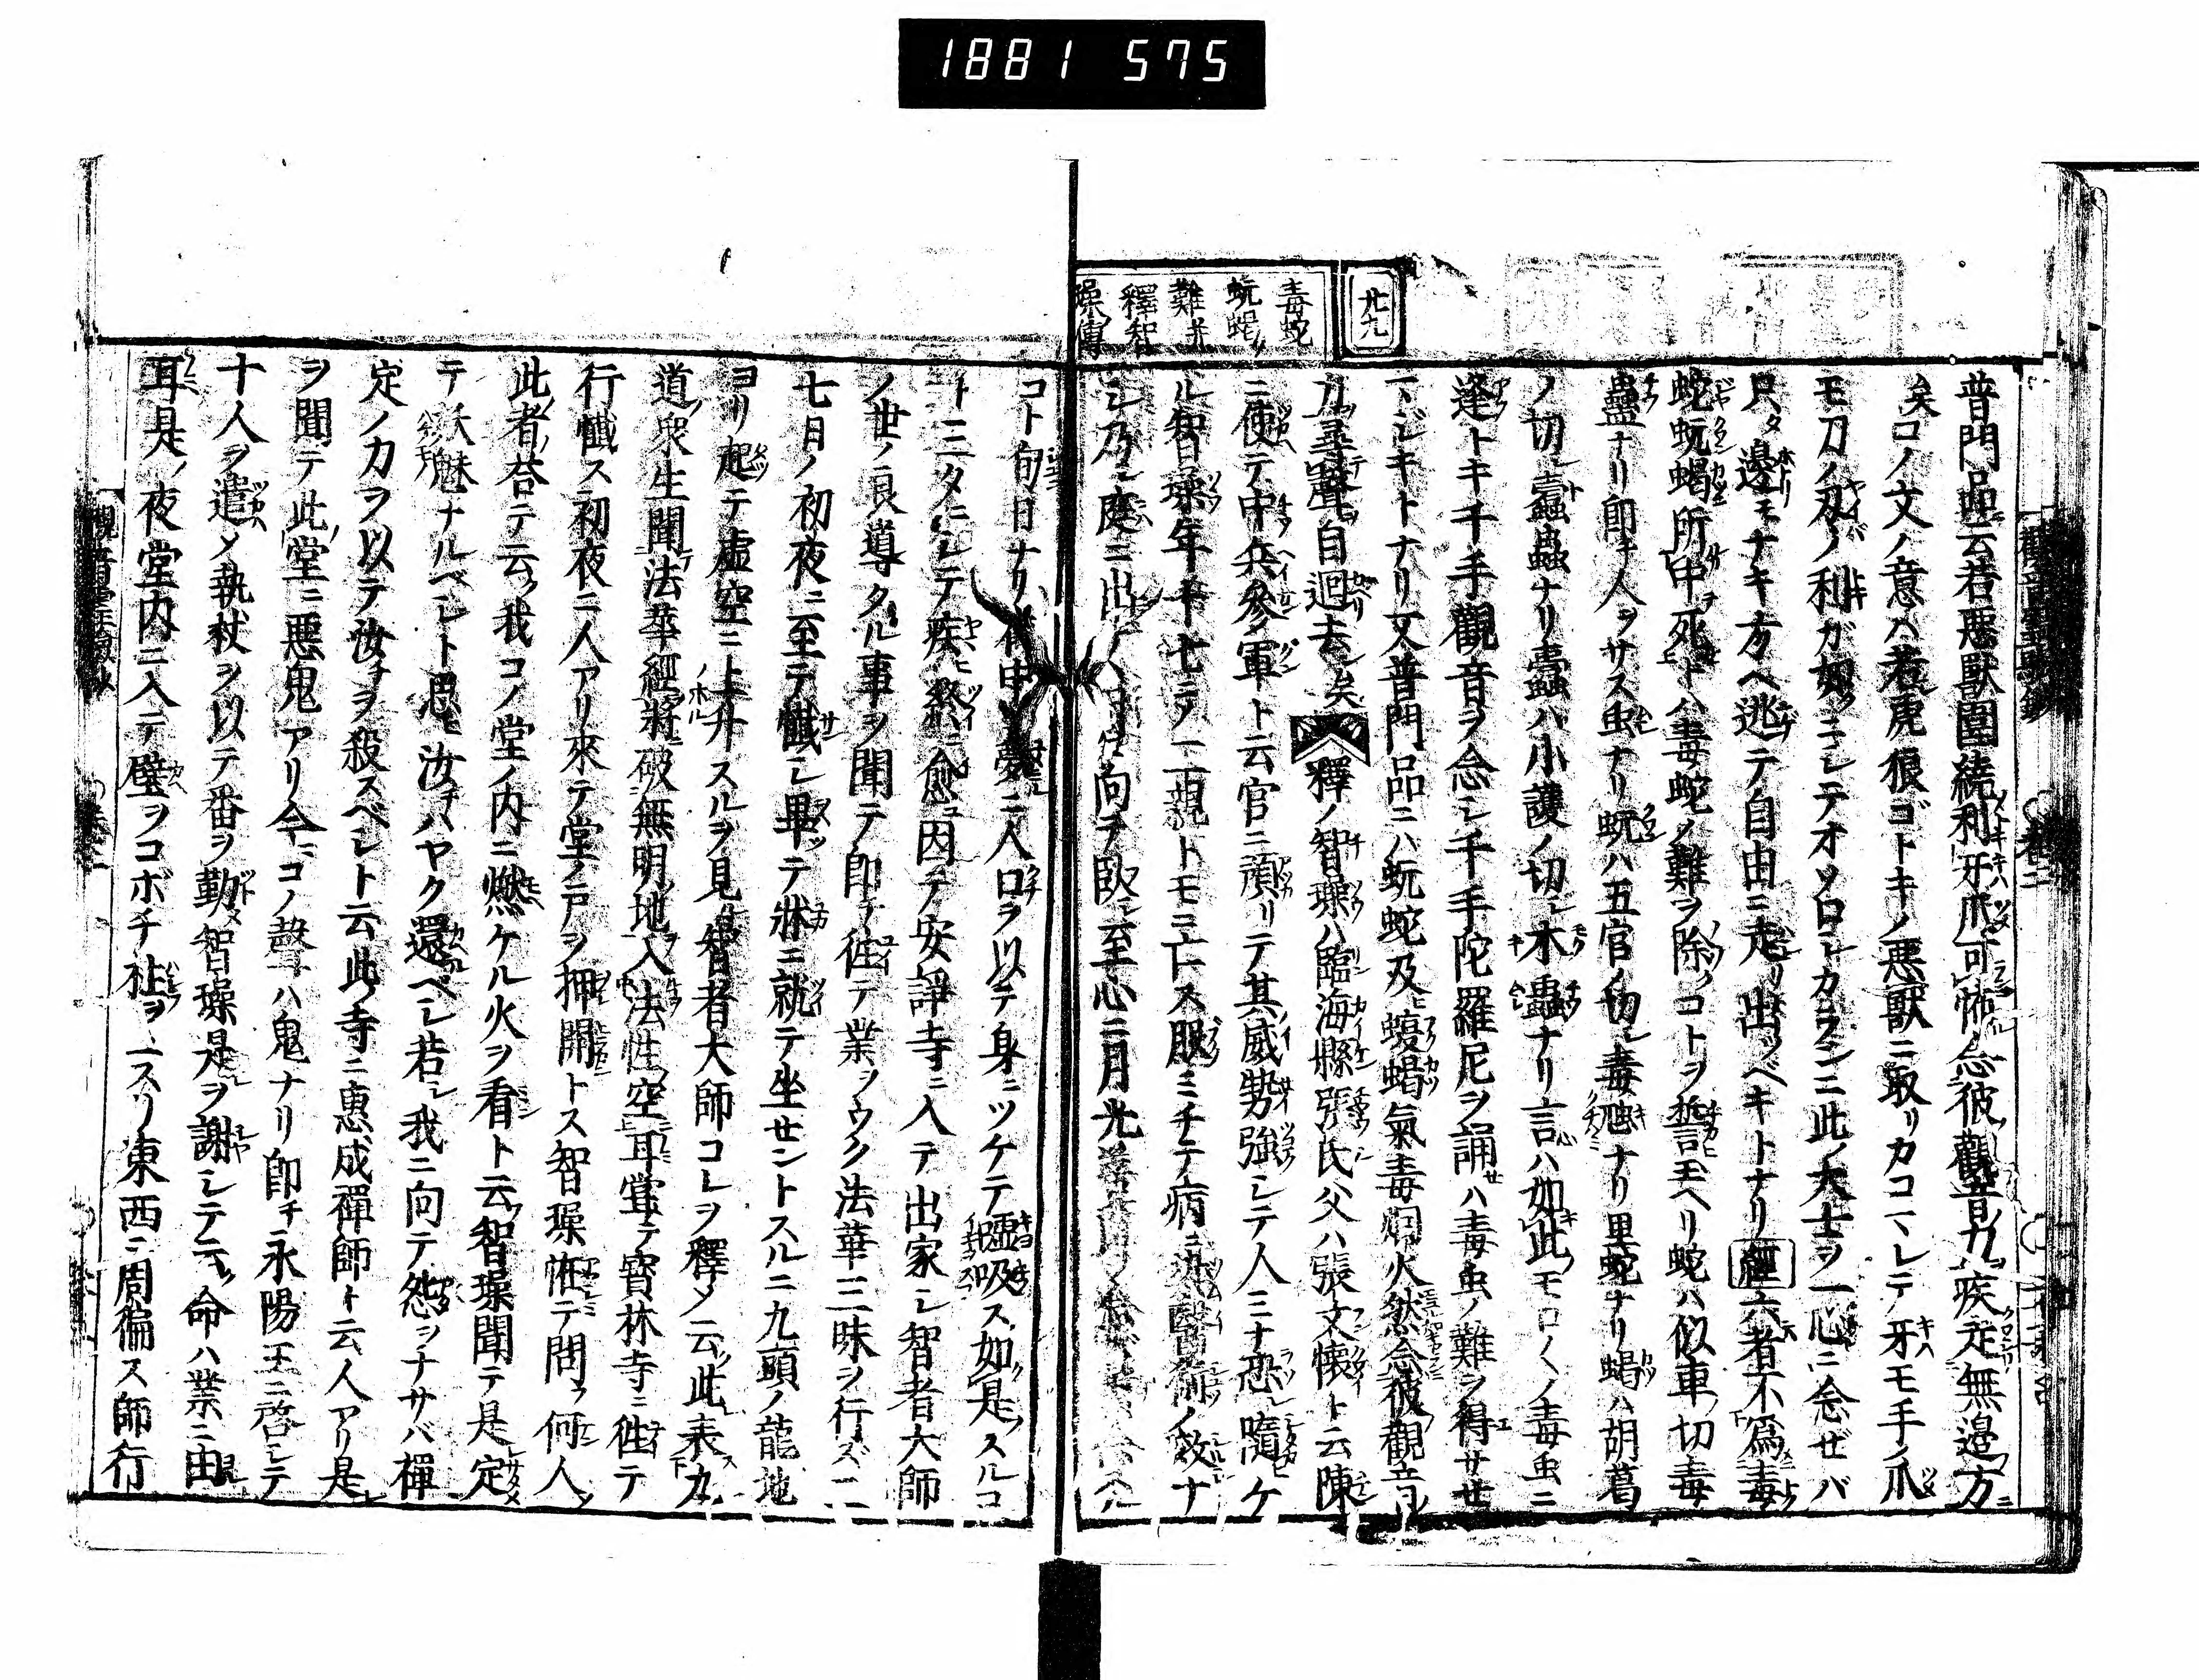 1881 575
廿九
毒蛇
蚖蛇
難并
釋智
璪傳
普門品云若惡獸圍繞利牙爪可怖念彼觀音力疾走無邊方
矣コノ文ノ意ハ若虎狼ゴトキノ惡獸ニ取リカコマレテ牙モ手ノ爪
モ刀ノ刄ノ利ガ如クニシテオソロシカランニ此ノ大士ヲ一心ニ念ゼバ
只タ邊モナキ方ヘ逃テ自由ニ走リ出ツベキトナリ經六者不爲毒
蛇蚖蝎所中死トハ毒蛇ノ難ヲ除クコトヲ誓玉ヘリ蛇ハ似車ノ切毒
蟲ナリ即チ人ヲサス虫ナリ蚖ハ五官ノ切シ毒虺ナリ黒蛇ナリ蝎ハ胡葛
ノ切シ蠧蟲ナリ蠧ハ小護ノ切シ木蟲ナリ言ハ如此モロ〱ノ毒虫ニ
逢トキ千手觀音ヲ念シ千手陀羅尼ヲ誦セハ毒虫ノ難ヲ得サセ
マジキトナリ又普門品ニハ蚖蛇及ヒ蝮蝎氣毒烟火然念彼觀音
力尋聲自迴去矣釋ノ智璪ハ臨海縣張氏父ハ張文懷ト云陳
ニ使テ中兵參軍ト云官ニ預リテ其威勢強シテ人ミナ恐レ隨ケ
ル智璪年十七ニテ二親トモニ亡ス服ミチテ病ニ醫術ノ效ナ
シ乃シ庭ニ出向テ臥シ至心ニ月光
コト旬日ナリ夢ニ人口ヲ以テ身ニツケテ噓吸ス如是スルコ
ト三タニシテ疾終ニ愈ユ因テ安靜寺ニ入テ出家シ智者大師
ノ世ノ良導タル事ヲ聞テ即チ徃テ業ヲウク法華三昧ヲ行ズ二
七日ノ初夜ニ至テ懺シ畢ッテ牀ニ就テ坐セントスルニ九頭ノ龍地
ヨリ起テ虚空ニ上升スルヲ見ル智者大師コレヲ釋メ云此表九
道衆生聞法華經將破無明地入法性空耳嘗テ寶林寺ニ徃テ
行懺ス初夜ニ人アリ來テ堂ノ戸ヲ押開トス智璪恠テ問フ何人ソ
此者ノ荅テ云ク我コノ堂ノ内ニ燃ケル火ヲ看ト云智璪聞テ是定
テ妖魅ナルベシト思ヒ汝チハヤク還ベシ若シ我ニ向テ怨ヲナサバ禪
定ノ力ヲ以テ汝チヲ殺スベシト云此ノ寺ニ惠成禪師ト云人アリ是
ヲ聞テ此ノ堂ニ惡鬼アリ今マコノ聲ハ鬼ナリ即チ永陽王ニ啓シテ
十人ヲ遣メ執杖ヲ以テ番ヲ勤メ智璪是ヲ謝シテ云ク命ハ業ニ由
耳是ノ夜堂内ニ入テ壁ヲコボチ柱ヲ
東西ニ周徧ス師行